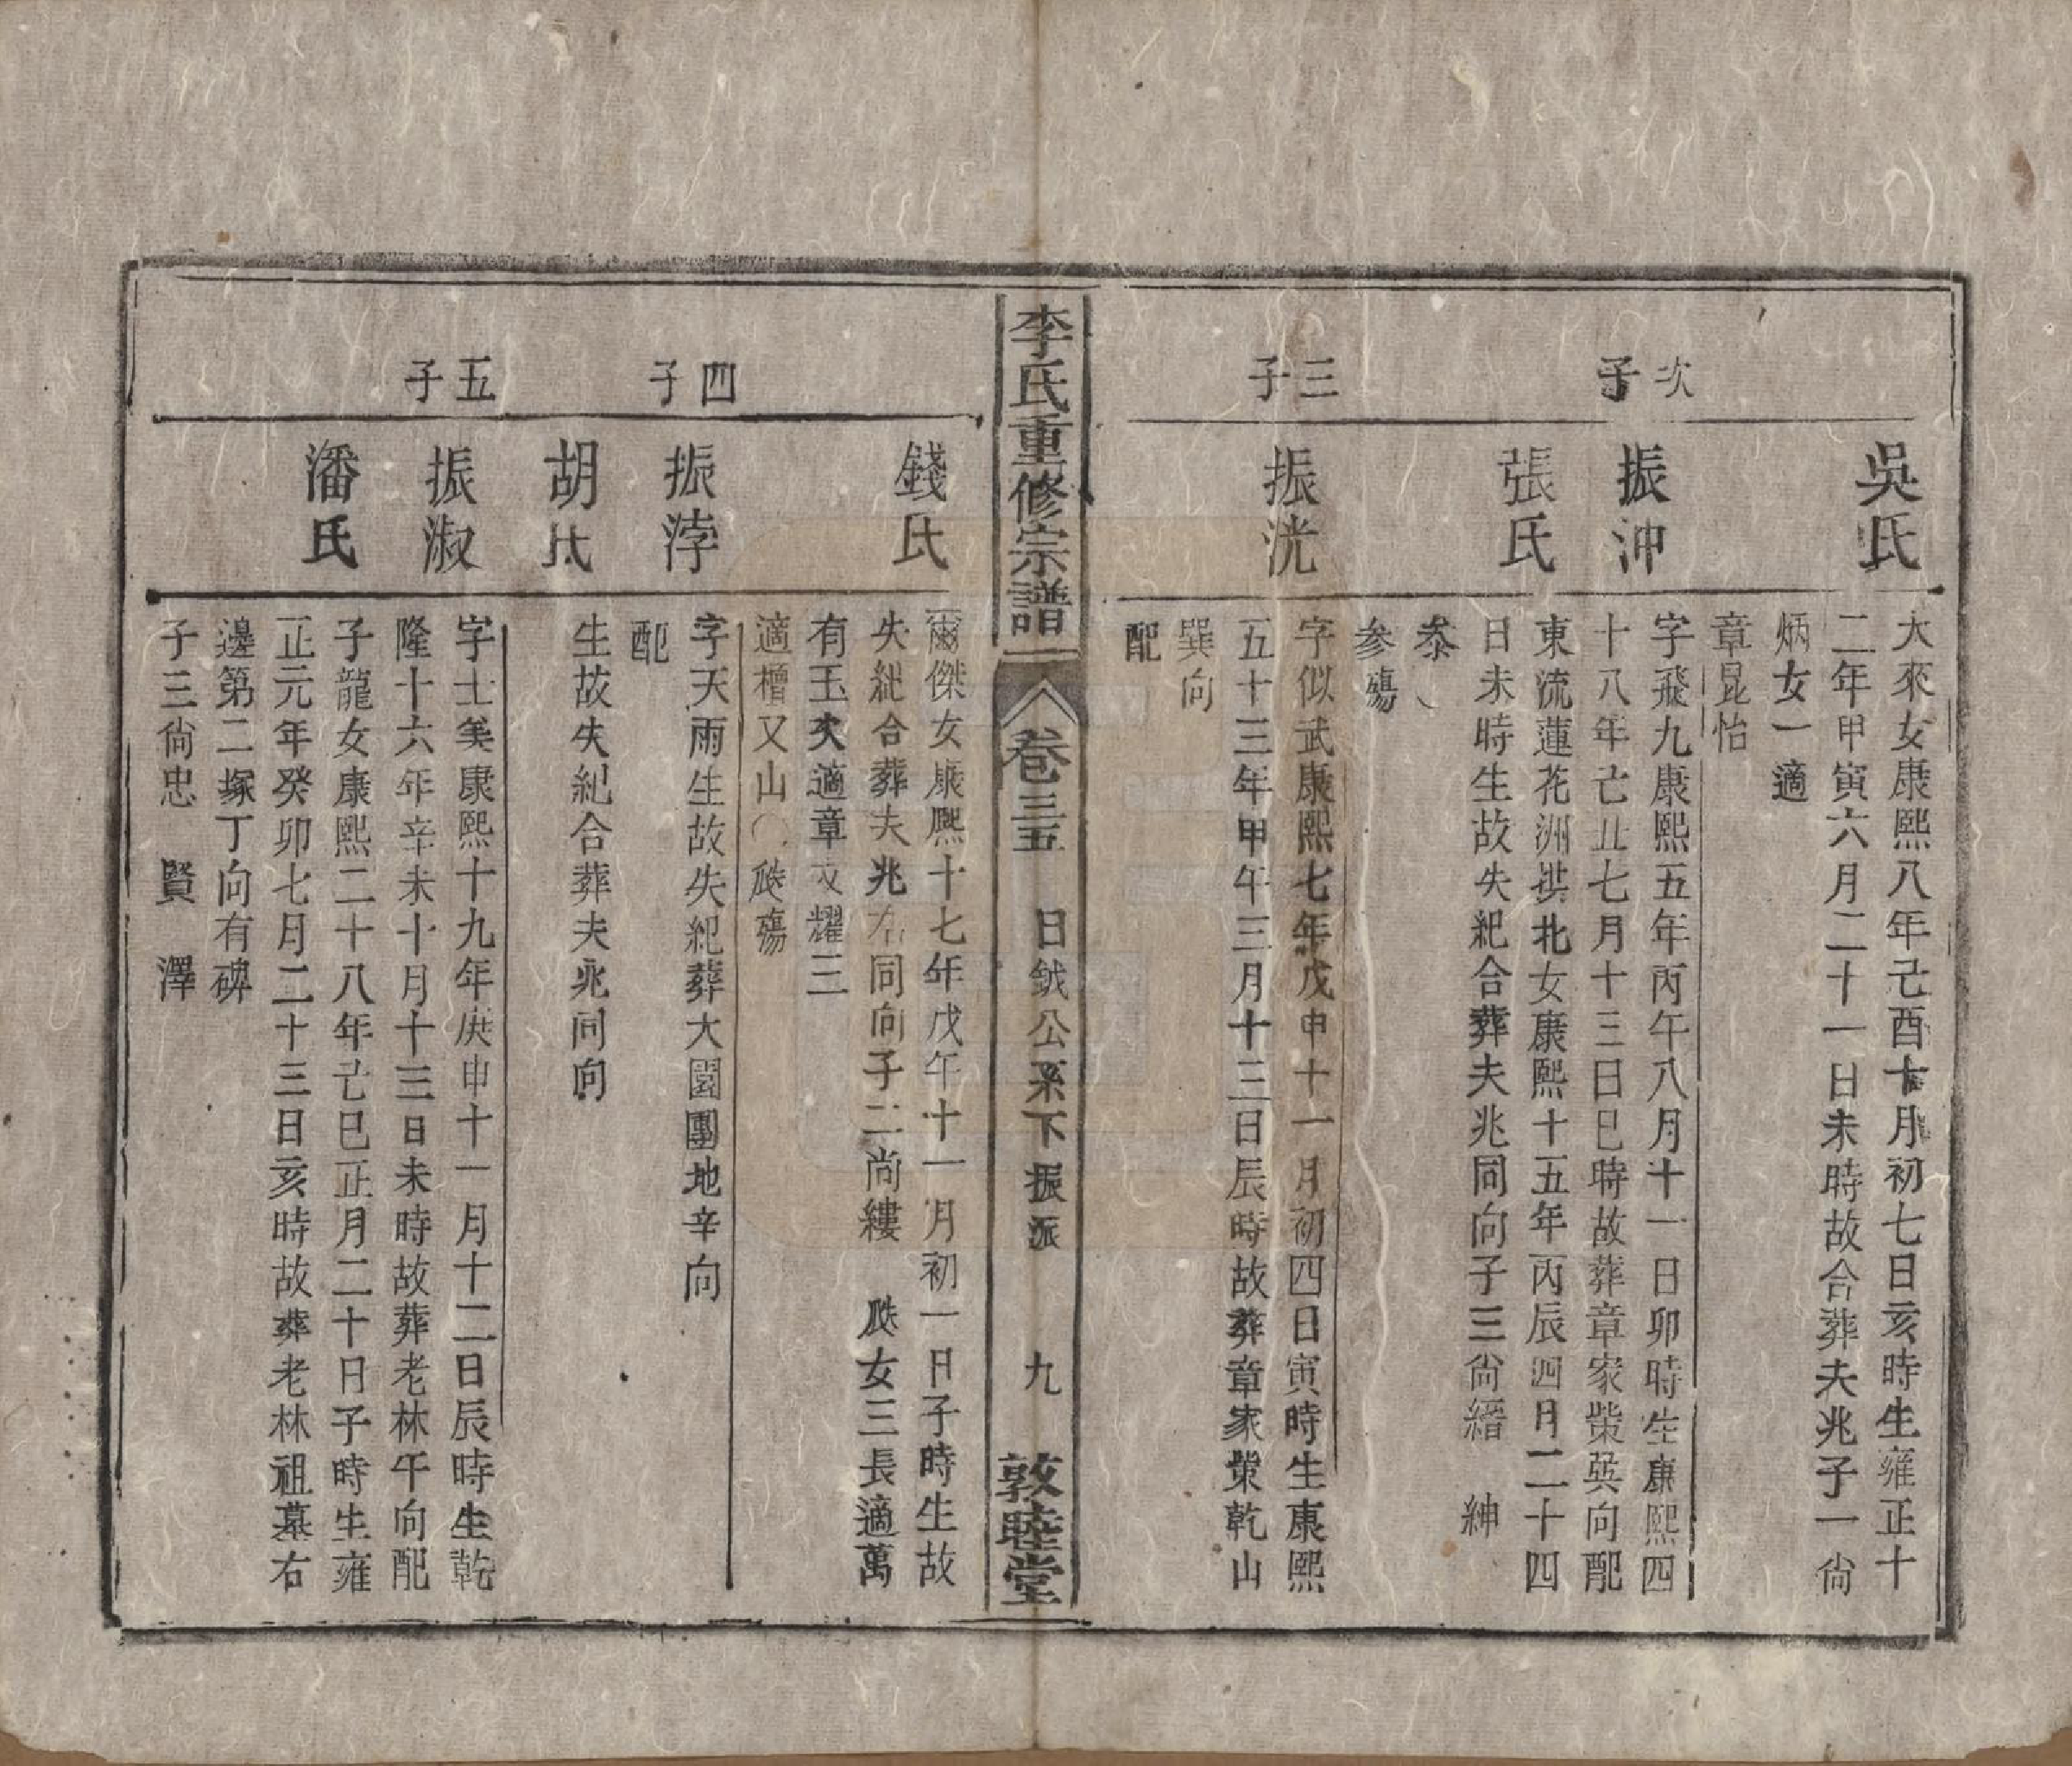 吳氏
大來女康熙八年己酉十月初七日亥時生雍正十
二年甲寅六月二十一日未時故合葬夫兆子一尙
炳女一適
章昆怡
次子
振沖
字飛九康熙五年丙午八月十一日卯時生康熙四
十八年己丑七月十三日巳時故葬章家柴巽向配
張氏
東流蓮花洲拱北女康熙十五年丙辰四月二十四
日未時生故失紀合葬夫兆同向子三尙縉 紳
叅殤
三子
振洸
字似武康熙七年戊申十一月初四日寅時生康熙
五十三年甲午三月十三日辰時故葬章家柴乾山
巽向
配
李氏重修宗譜
卷三五 日鉞公系下振派 九 敦睦堂
錢氏
爾傑女康熙十七年戊午十一月初一日子時生故
失紀合葬夫兆右同向子二尚縷 瓞女三長適萬
有玉次適章文耀三
適檀又山〇瓞殤
四子
振浡
字天雨生故失紀葬大園團地辛向
配
胡氏
生故失紀合葬夫兆同向
五子
振淑
字士美康熙十九年庚申十一月十二日辰時生乾
隆十六年辛未十月十三日未時故葬老林午向配
潘氏
子龍女康熙二十八年己巳正月二十日子時生雍
正元年癸卯七月二十三日亥時故葬老林祖墓右
邊第二塚丁向有碑
子三尙忠 賢 澤